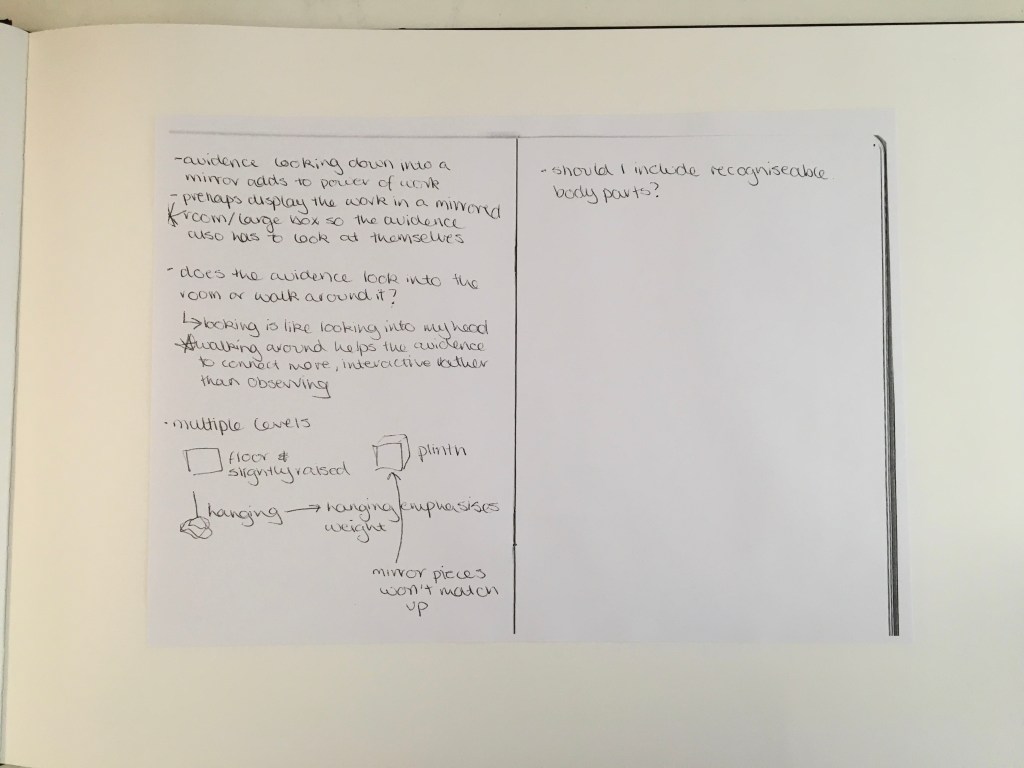 - auidence looking down into a
mirror adds to power of work
- prehaps display the work in a mirrored
room/large box so the auidence
also has to look at themselves
- does the auidence look into the
room or walk around it?
↳ looking is like looking into my head
walking around helps the auidence
to connect more, interactive rather
than observing
· multiple levels
floor &
slightly raised
plinth
hanging → hanging emphasises
weight
mirror pieces
won't match
up
- should I include recogniseable
body parts?